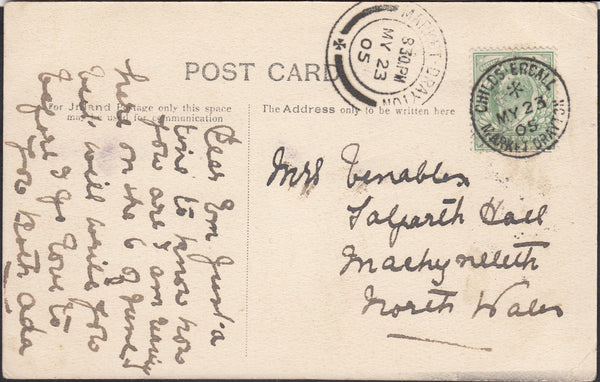 POST CARD
MARKET-DRAYTON
8.30PM
MY 23
05
CHILDS-ERCALL
MY 23
05
MARKET DRAYTON
For Inland Postage only this space
may be used for communication
The Address only to be written here
Mrs Venables
Talgarth Hall
Machynlleth
North Wales
Dear Em Just a
line to know how
you are I am
here on the 6 of June
will write you
before I go love to
you both Ada